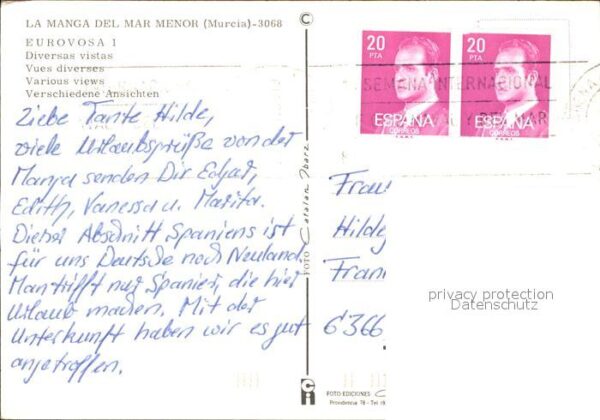 LA MANGA DEL MAR MENOR (Murcia)-3068
EUROVOSA I
Diversas vistas
Vues diverses
Various views
Verschiedene Ansichten
Liebe Tante Hilde,
viele Urlaubsgrüße von der
Manga senden Dir Edgar,
Edith, Vanessa u. Marita.
Dieser Abschnitt Spaniens ist
für uns Deutsche noch Neuland.
Man trifft nur Spanier, die hier
Urlaub machen. Mit der
Unterkunft haben wir es gut
angetroffen.
FOTO Catalan Ibarz
20
PTA
ESPAÑA
CORREOS
20
PTA
ESPAÑA
CORREOS
SEMANA INTERNACIONAL
Frau
Hilde
Fran
6366
privacy protection
Datenschutz
FOTO EDICIONES
Providencia 78 - Tel